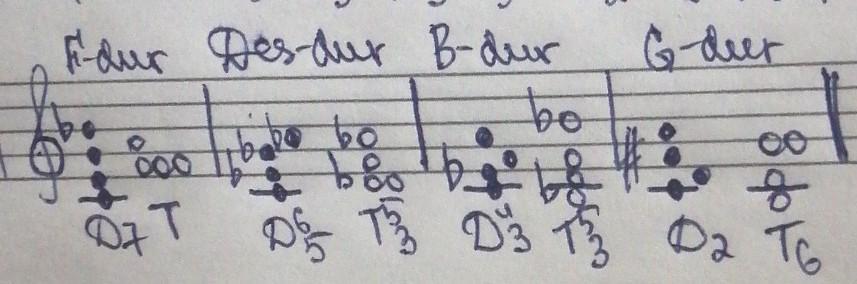 F-dur Des-dur B-dur G-dur
D7 T D6/5 T5/3 D4/3 T5/3 D2 T6